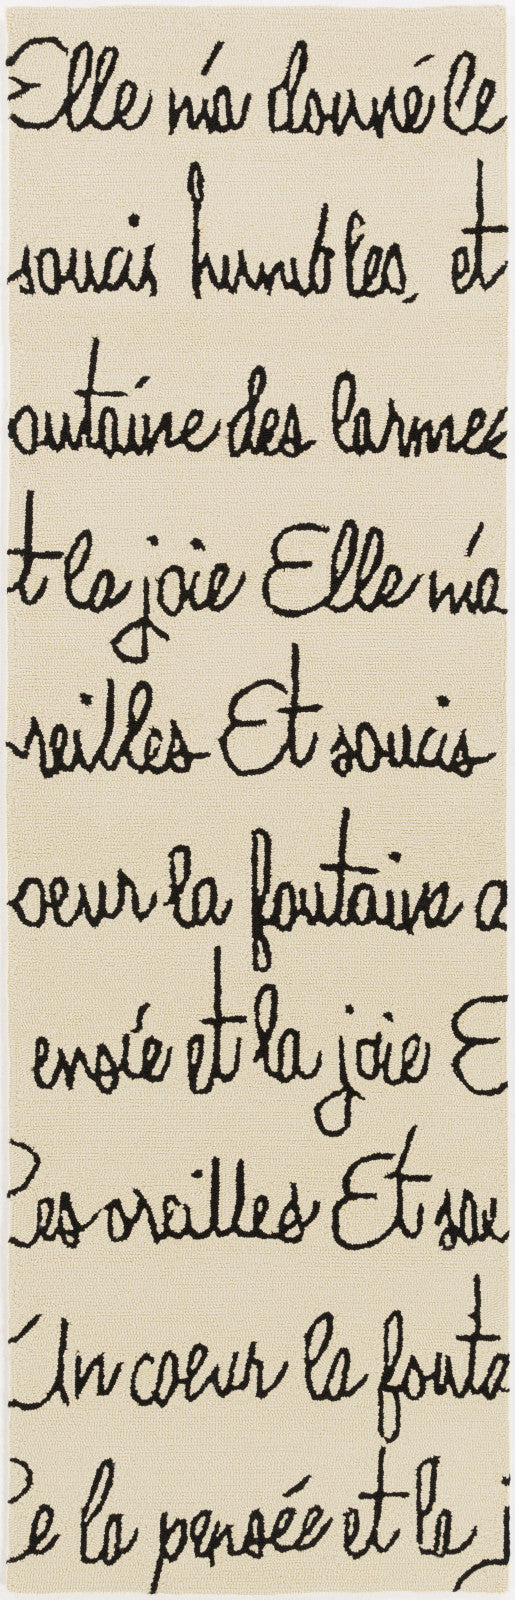 Elle m'a donné le
soucis humbles, et
ontaine des larmes
t la joie Elle m'a
reilles Et soucis
oeur la fontaine d
ensée et la joie E
les oreilles Et sou
Un coeur la fonta
De la pensée et la j